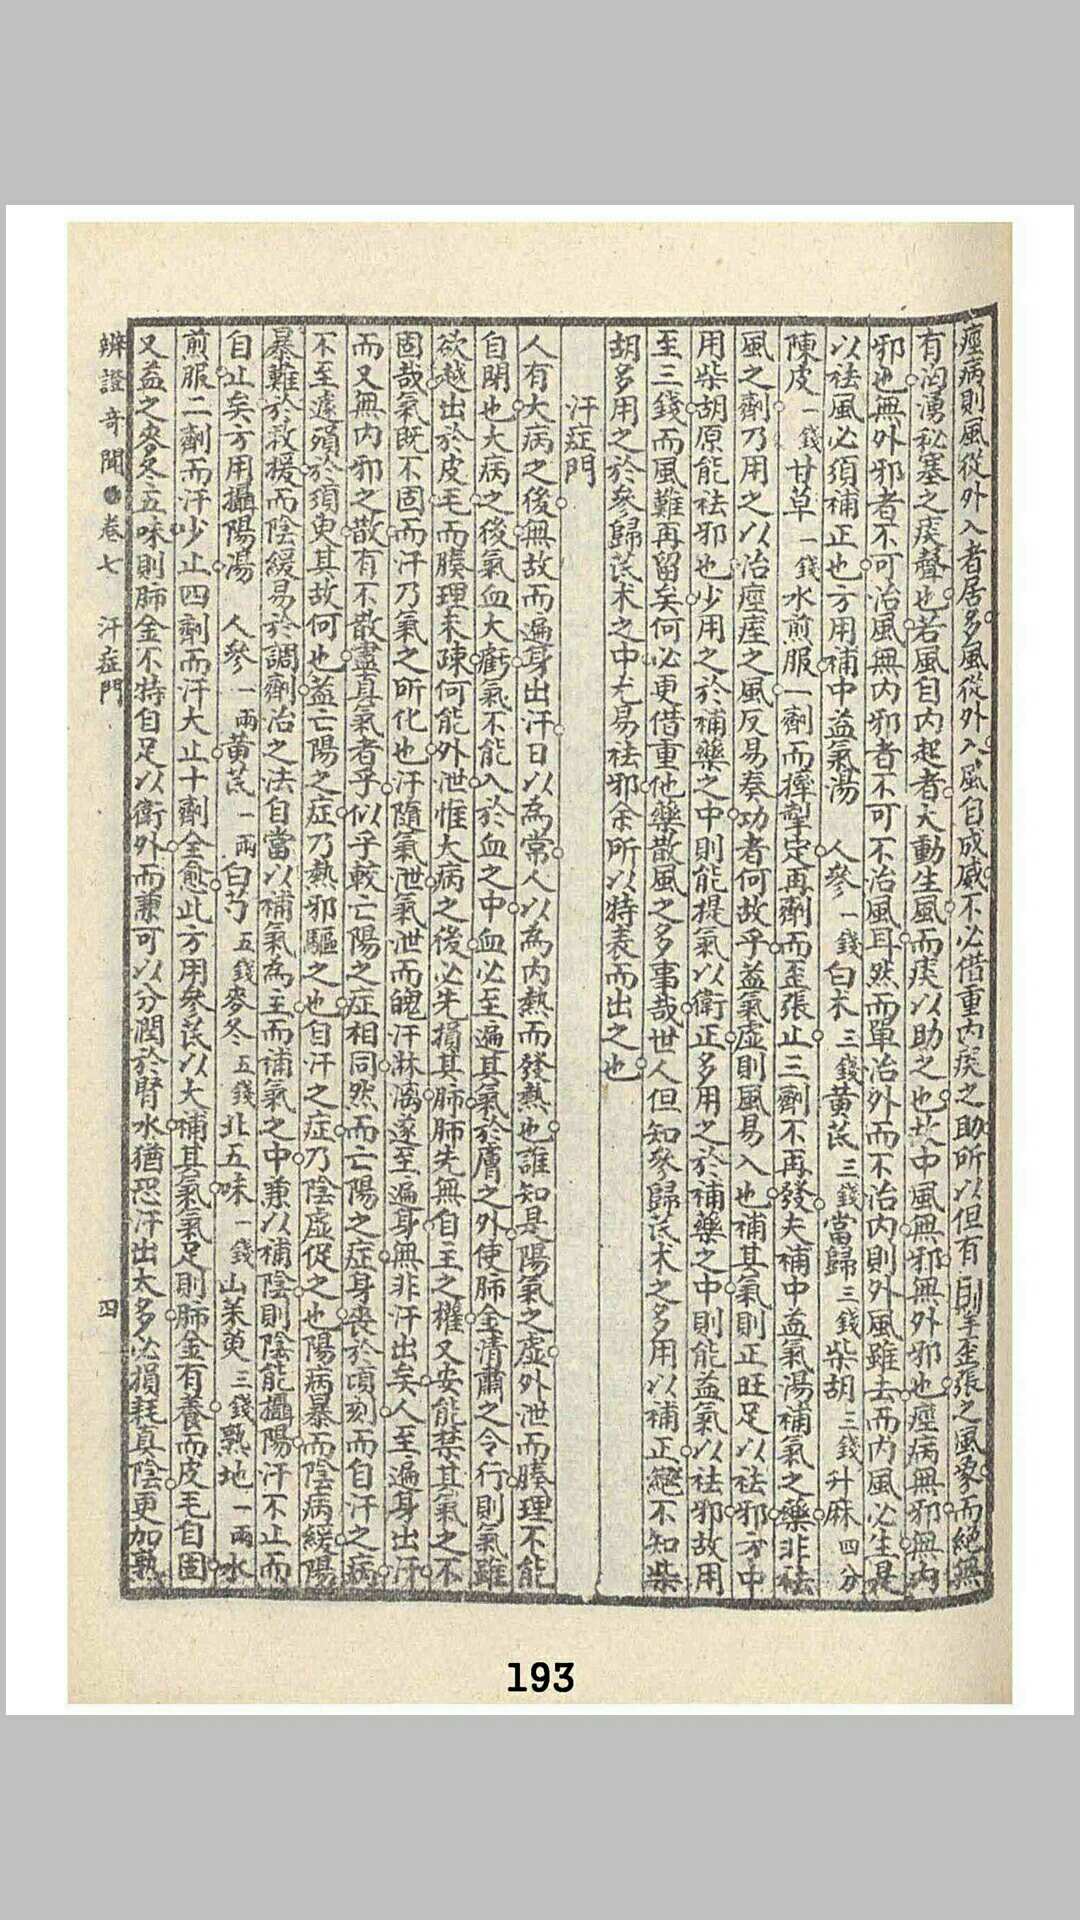 痙病則風從外入者居多風從外入風自成威不必借重內痰之助所以但有牽歪張之風象而絕無
有洶湧秘塞之痰聲也若風自內起者火動生風而痰以助之也故中風無邪無外邪也痙病無邪無內
邪也無外邪者不可治風無內邪者不可不治風耳然而單治外而不治內則外風雖去而內風必生是
以祛風必須補正也方用補中益氣湯 人參一錢白朮三錢黃芪三錢當歸三錢柴胡三錢升麻四分
陳皮一錢甘草一錢水煎服一劑而攣掣定再劑而歪張止三劑不再發夫補中益氣湯補氣之藥非祛
風之劑乃用之以治痙痙之風反易奏功者何故乎蓋氣虛則風易入也補其氣則正旺足以祛邪方中
用柴胡原能祛邪也少用之於補藥之中則能提氣以衛正多用之於補藥之中則能益氣以祛邪故用
至三錢而風難再留矣何必更借重他藥散風之多事哉世人但知參歸芪朮之多用以補正絕不知柴
胡多用之於參歸芪朮之中尤易祛邪余所以特表而出之也
汗症門
人有大病之後無故而遍身出汗日以為常人以為內熱而發熱也誰知是陽氣之虛外泄而腠理不能
自閉也大病之後氣血大虧氣不能入於血之中血必至遍其氣於膚之外使肺金清肅之令行則氣雖
欲越出於皮毛而腠理未疎何能外泄惟大病之後必先損其肺肺先無自主之權又安能禁其氣之不
固哉氣既不固而汗乃氣之所化也汗隨氣泄氣泄而魄汗淋漓遂至遍身無非汗出矣人至遍身出汗
而又無內邪之散有不散盡真氣者乎似乎較亡陽之症相同然而亡陽之症身喪於頃刻而自汗之病
不至遽殞於須臾其故何也蓋亡陽之症乃熱邪驅之也自汗之症乃陰虛促之也陽病暴而陰病緩陽
暴難於救援而陰緩易於調劑治之法自當以補氣為主而補氣之中兼以補陰則陰能攝陽汗不止而
自止矣方用攝陽湯 人參一兩黃芪一兩白芍五錢麥冬五錢北五味一錢山茱萸三錢熟地一兩水
煎服二劑而汗少止四劑而汗大止十劑全愈此方用參芪以大補其氣氣足則肺金有養而皮毛自固
又益之麥冬五味則肺金不特自足以衛外而兼可以分潤於腎水猶恐汗出太多必損耗真陰更加熟
辨證奇聞 卷七 汗症門 四
193